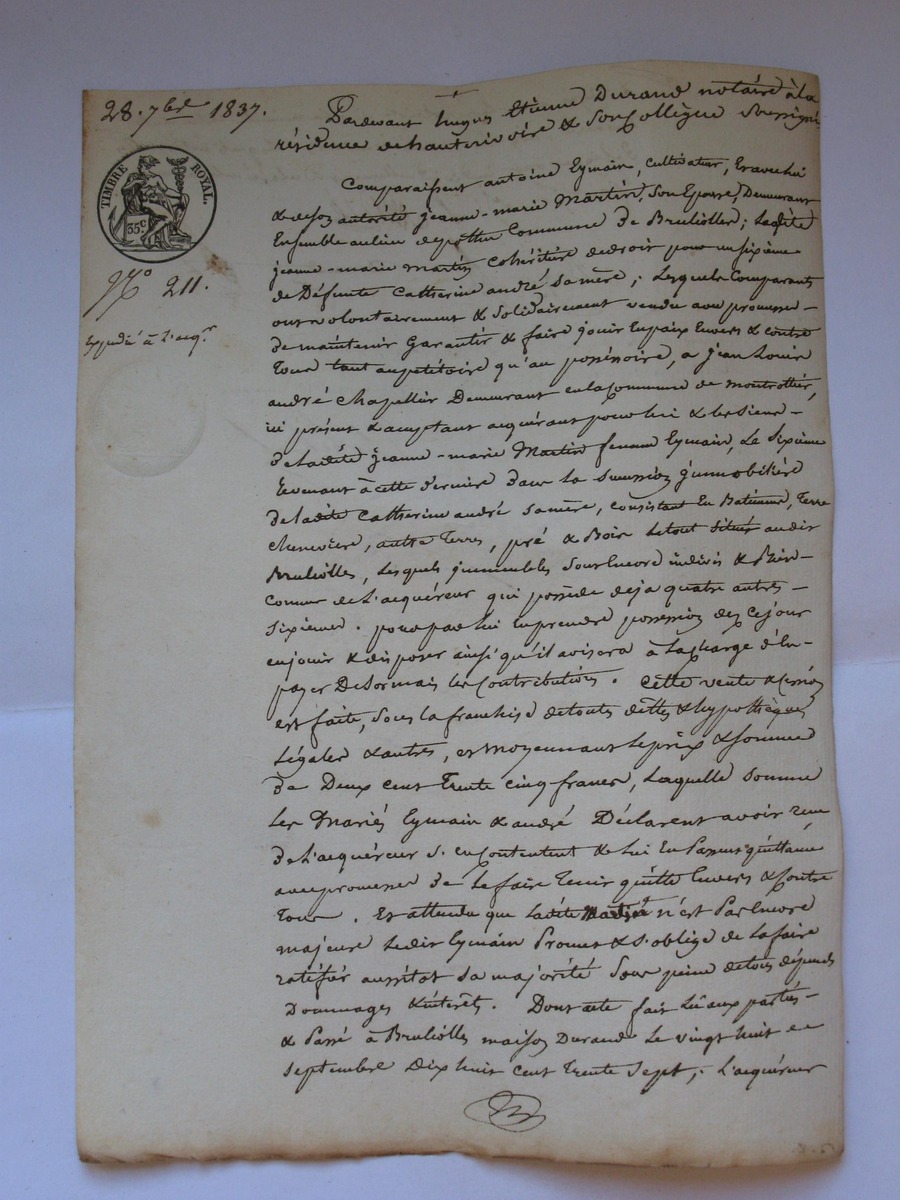 28. 7bre 1837.
TIMBRE ROYAL.
35c
No 211.
Expédié à l'acqr
Pardevant hugues Etienne Durand notaire à la
résidence de hauterivoire & son Collègue Soussignés
Comparaissent antoine Eymain, Cultivateur, & avec lui
& de son autorité jeanne-marie Martin, Son Epouse, Demeurant
Ensemble au lieu de commune de Brulioles; Ladite
jeanne-marie Martin Cohéritière de droit pour un Sixième
de Défunte Catherine andré Sa mère; Lesquels Comparants
ont volontairement & Solidairement vendu avec promesse-
de maintenir Garantir & faire jouir En paix Envers & contre
Tous tant au pétitoire qu'au possessoire, a jean Louis
andré Chapellier Demeurant en la Commune de montrottier,
ici présent & acceptant acquérant pour lui & les Siens-
de Ladite jeanne-marie Martin femme Eymain, Le Sixième
Revenant à cette dernière dans la Succession jmmobilière
de ladite Catherine andré Sa mère, consistant En Batiment, Terre
Chenevière, autre Terres, pré & Bois Le tout Situés au dit
Brulioles, Lesquels jmmeubles Sont Encore indivis & Bien
Commun de L'acquéreur qui possède deja quatre autres-
Sixièmes. pour par lui en prendre possession dez Ce jour
en jouir & disposer ainsi qu'il avisera à La charge d'En-
payer Desormais les Contributions. Cette vente & Cession
est faite, Sous la franchise de toutes dettes & hypothèques
Légales & autres, et Moyennant Le prix & Somme
de Deux cent Trente cinq francs, Laquelle Somme
Les Mariés Eymain & andré Déclarent avoir reçue
de L'acquéreur S'en Contentent & Lui En Passent quittance
avec promesse de Le faire Tenir quitte Envers & Contre
Tous. Et attendu que Ladite Martin n'est Pas Encore
majeure Ledit Eymain Promet & S'oblige de La faire
ratifier aussitot Sa majorité Sous peine de tous dépends
Dommages & interêts. Dont acte fait Lû aux parties-
& Passé à Brulioles maison Durand Le vingt huit
Septembre Dix huit Cent Trente Sept; L'acquéreur